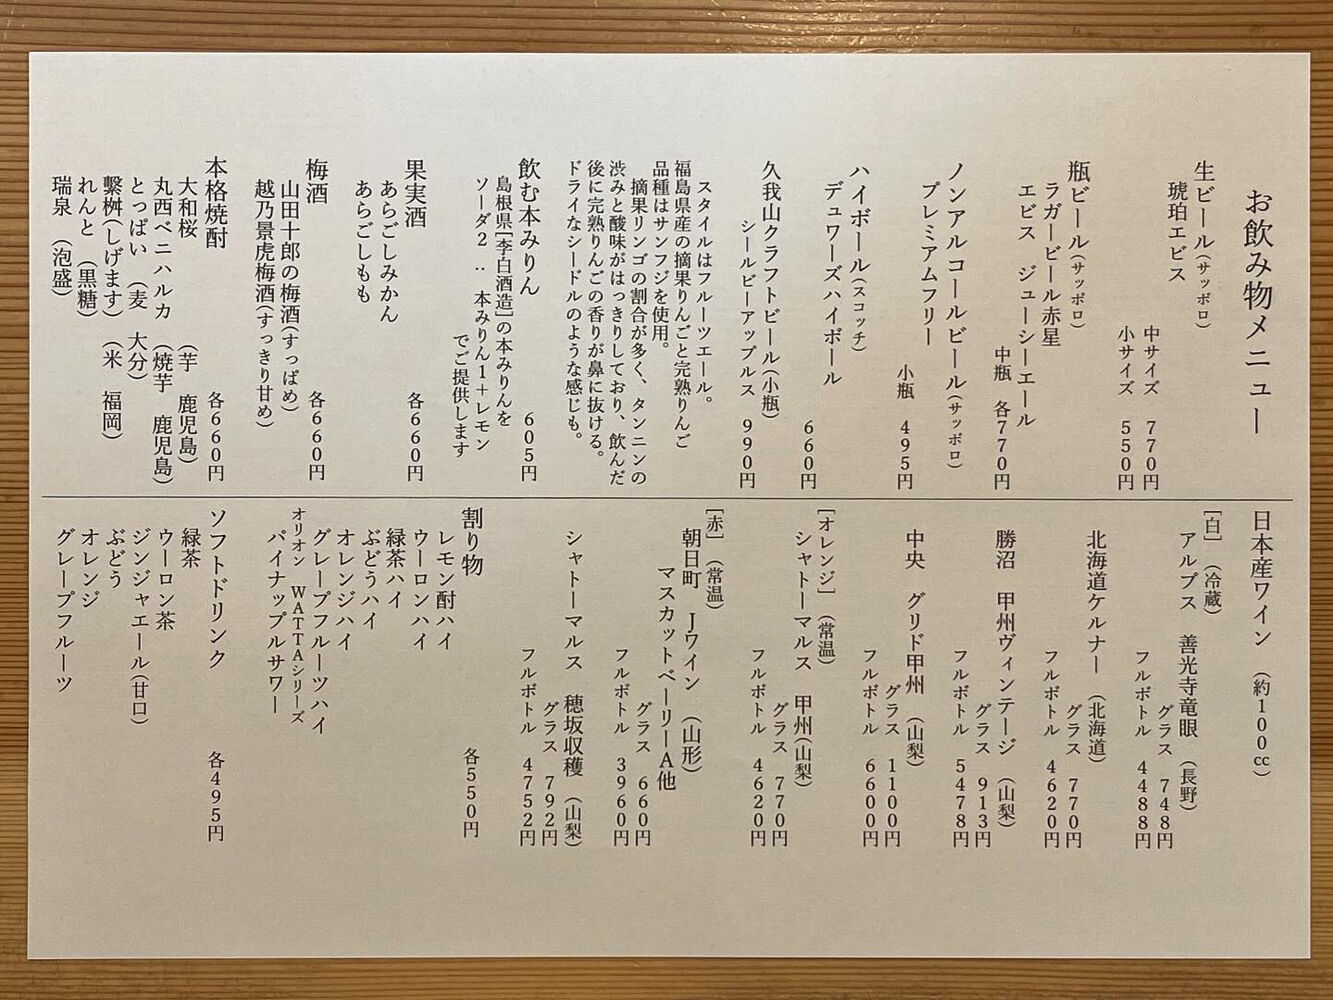 お飲み物メニュー
生ビール(サッポロ)
琥珀エビス
中サイズ 770円
小サイズ 550円
瓶ビール(サッポロ)
ラガービール赤星
エビス ジューシーエール
中瓶 各770円
ノンアルコールビール(サッポロ)
プレミアムフリー
小瓶 495円
ハイボール(スコッチ)
デュワーズハイボール
660円
久我山クラフトビール(小瓶)
シールビーアップルス 990円
スタイルはフルーツエール。
福島県産の摘果りんごと完熟りんご
品種はサンフジを使用。
摘果リンゴの割合が多く、タンニンの
渋みと酸味がはっきりしており、飲んだ
後に完熟りんごの香りが鼻に抜ける。
ドライなシードルのような感じも。
飲む本みりん 605円
島根県「李白酒造」の本みりんを
ソーダ2:本みりん1+レモン
でご提供します
果実酒 各660円
あらごしみかん
あらごしもも
梅酒 各660円
山田十郎の梅酒(すっぱめ)
越乃景虎梅酒(すっきり甘め)
本格焼酎 各660円
大和桜 (芋 鹿児島)
丸西ベニハルカ (焼芋 鹿児島)
とっぱい (麦 大分)
繫桝(しげます) (米 福岡)
れんと (黒糖)
瑞泉 (泡盛)
日本産ワイン (約100cc)
[白] (冷蔵)
アルプス 善光寺竜眼 (長野)
グラス 748円
フルボトル 4488円
北海道ケルナー (北海道)
グラス 770円
フルボトル 4620円
勝沼 甲州ヴィンテージ (山梨)
グラス 913円
フルボトル 5478円
中央 グリド甲州 (山梨)
グラス 1100円
フルボトル 6600円
[オレンジ] (常温)
シャトーマルス 甲州(山梨)
グラス 770円
フルボトル 4620円
[赤] (常温)
朝日町 Jワイン (山形)
マスカットベーリーA他
グラス 660円
フルボトル 3960円
シャトーマルス 穂坂収穫 (山梨)
グラス 792円
フルボトル 4752円
割り物 各550円
レモン酎ハイ
ウーロンハイ
緑茶ハイ
ぶどうハイ
オレンジハイ
グレープフルーツハイ
オリオン WATTAシリーズ
パイナップルサワー
ソフトドリンク 各495円
緑茶
ウーロン茶
ジンジャエール(甘口)
ぶどう
オレンジ
グレープフルーツ